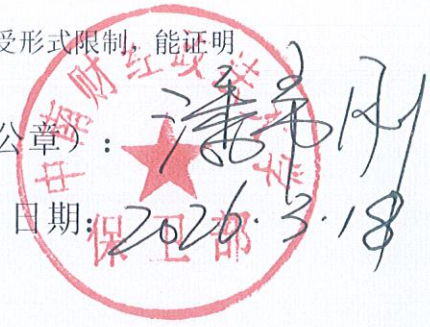 受形式限制，能证明
公章）：潘常刚
日期：2026.3.18
中南财经政法大学
保卫部